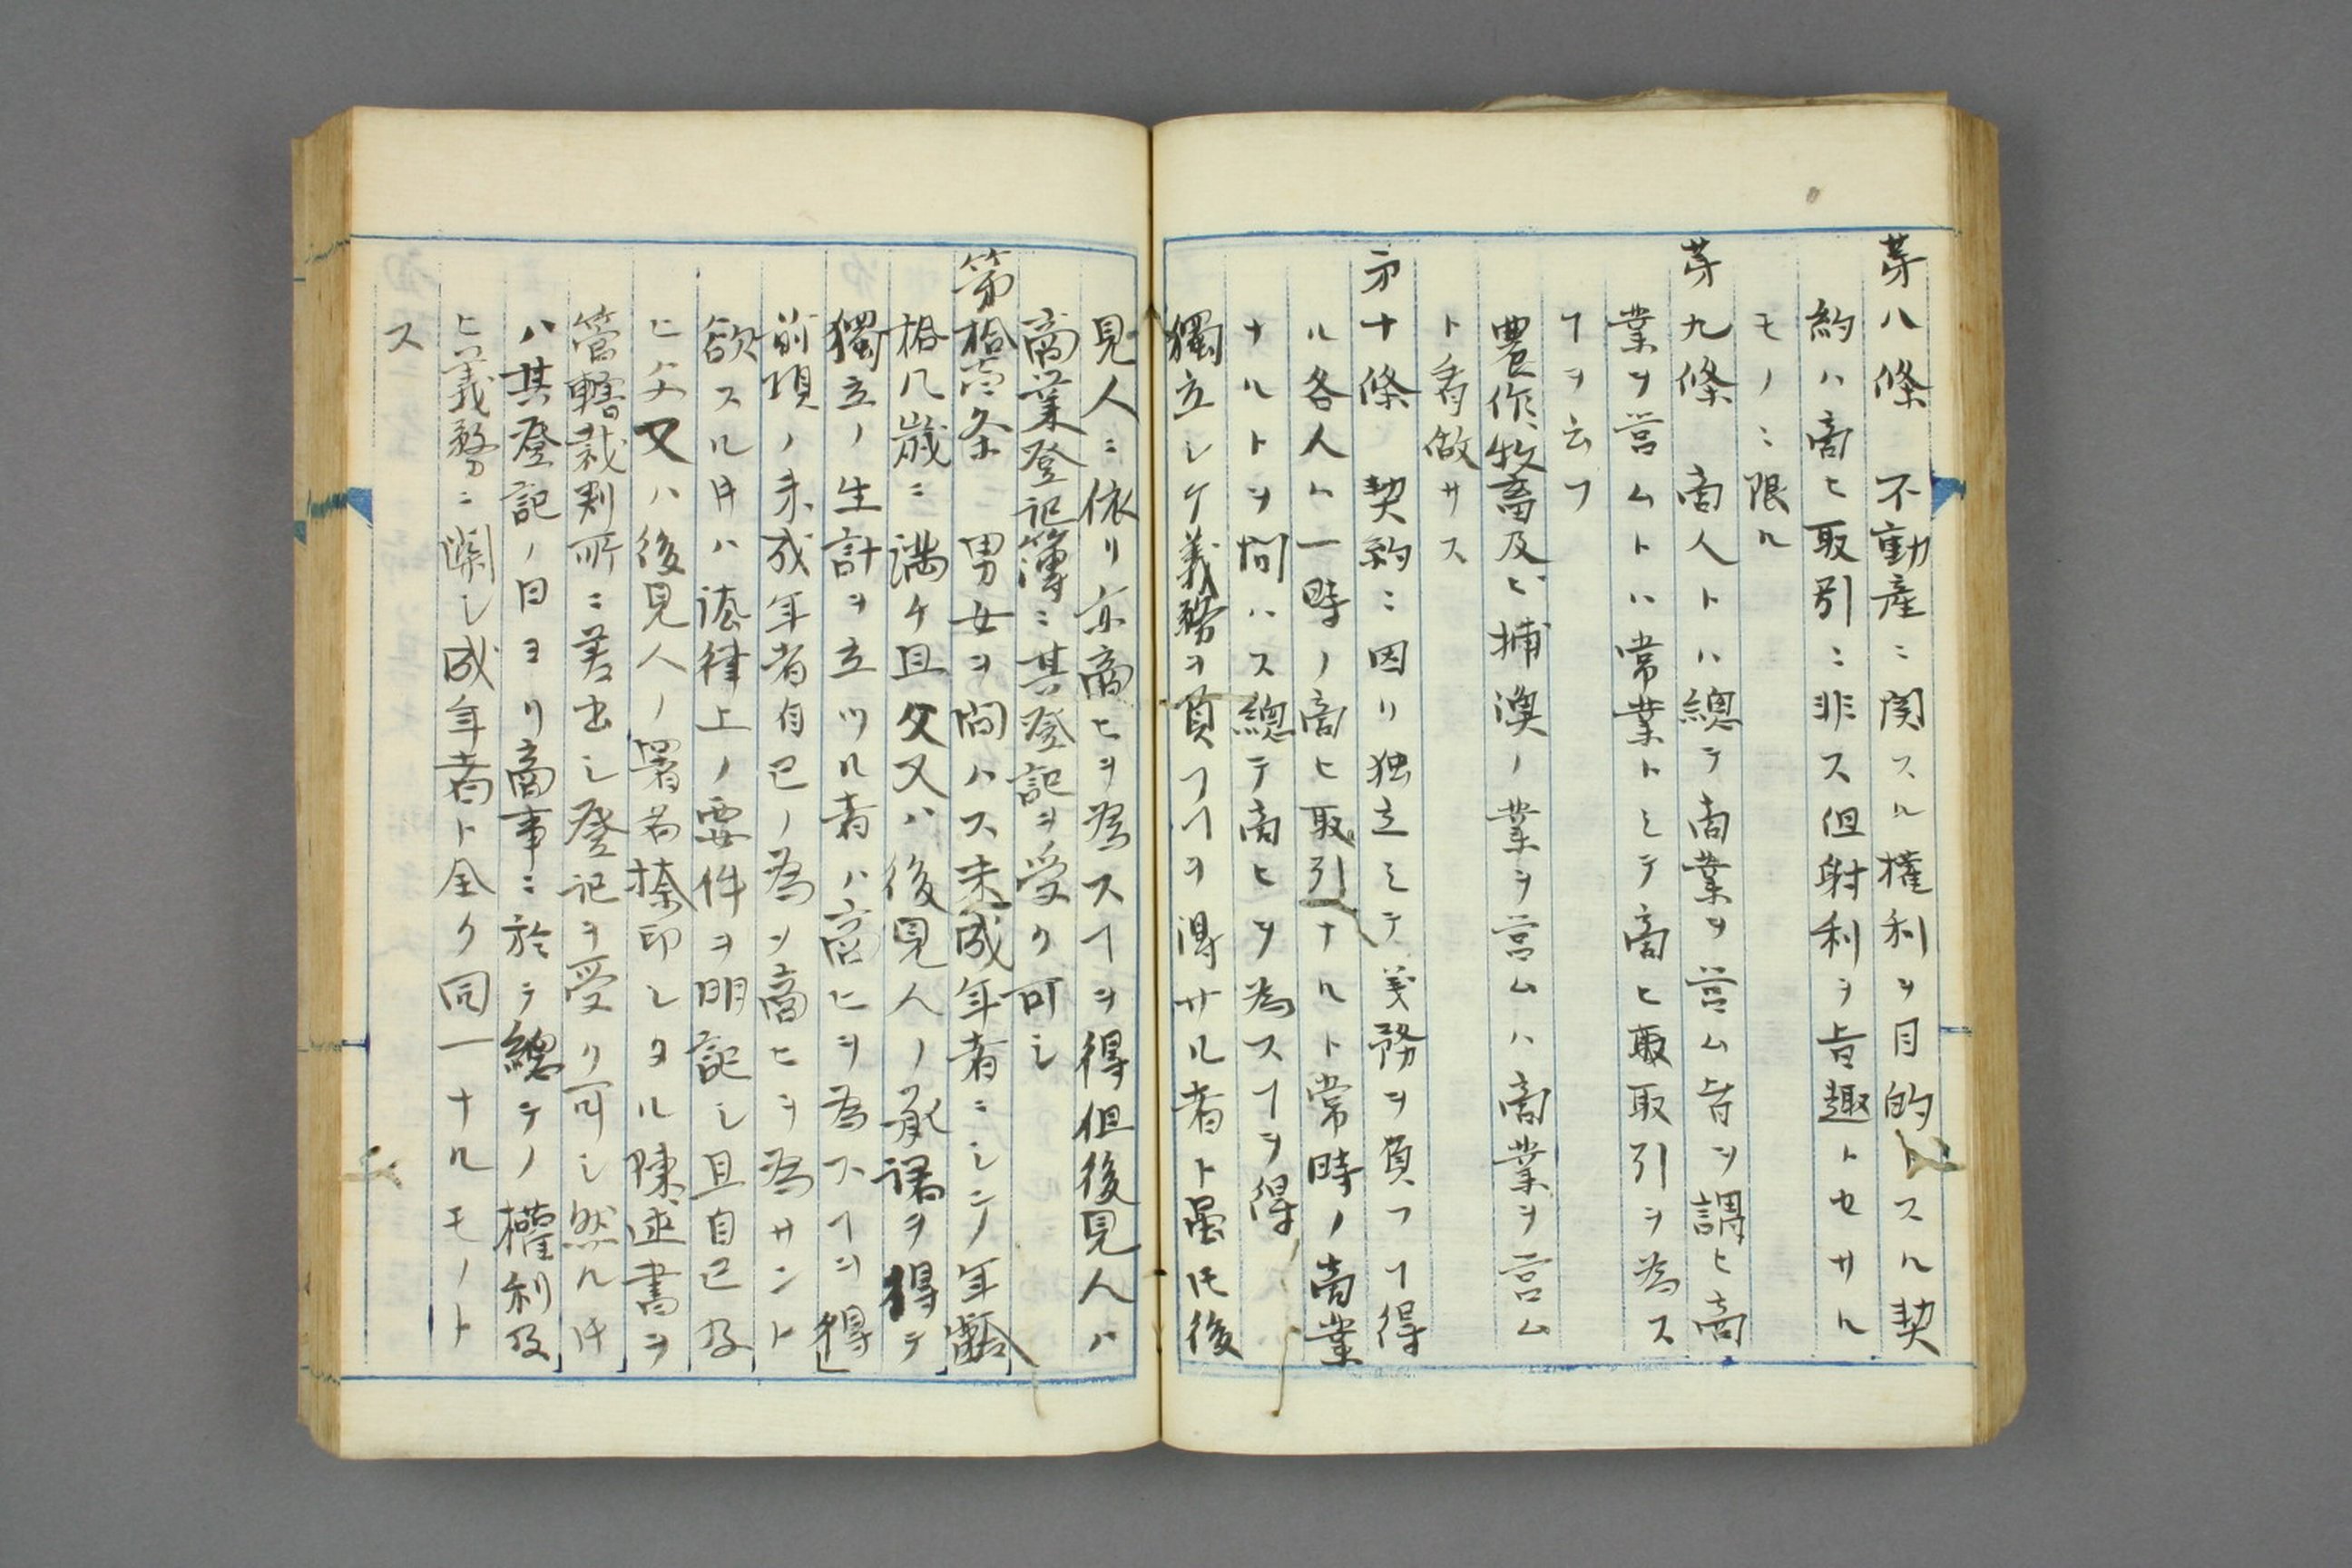 第八條　不動産ニ関スル權利ヲ目的トスル契
約ハ商ヒ取引ニ非ス但射利ヲ旨趣トセサル
モノニ限ル
第九條　商人トハ總テ商業ヲ営ム者ヲ謂ヒ商
業ヲ営ムトハ常業トシテ商ヒ取引ヲ為ス
ヿヲ云フ
農作、牧畜及ヒ捕漁ノ業ヲ営ムハ商業ヲ営ム
ト看做サス
第十條　契約ニ因リ独立シテ義務ヲ負フヿ得
ル各人ハ一時ノ商ヒ取引ナルト常時ノ商業
ナルトヲ問ハス總テ商ヒヲ為スヿヲ得
獨立シテ義務ヲ負フヿヲ得サル者ト雖𪜈後
見人ニ依リ亦商ヒヲ為スヿヲ得但後見人ハ
商業登記簿ニ其登記ヲ受ク可シ
第拾壱条　男女ヲ問ハス未成年者ニシテ年齢
拾八歳ニ満ケ且父又ハ後見人ノ承諾ヲ得テ
獨立ノ生計ヲ立ツル者ハ商ヒヲ為スヿヲ得
前項ノ未成年者自己ノ為メ商ヒヲ為サント
欲スル片ハ法律上ノ要件ヲ明記シ且自己及
ヒ父又ハ後見人ノ署名捺印シタル陳述書ヲ
管轄裁判所ニ差出シ登記ヲ受ク可シ然ル片
ハ其登記ノ日ヨリ商事ニ於テ總テノ權利及
ヒ義務ニ関シ成年者ト全ク同一ナルモノト
ス